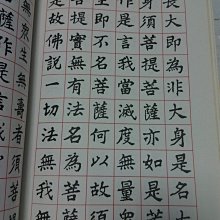 長大即為非大身是名大
身須菩提菩薩亦如是若
作是言我當滅度無量眾
生即不名菩薩何以故須
菩提實無有法名為菩薩
是故佛說一切法無我
無眾生無壽者須菩
薩作是言